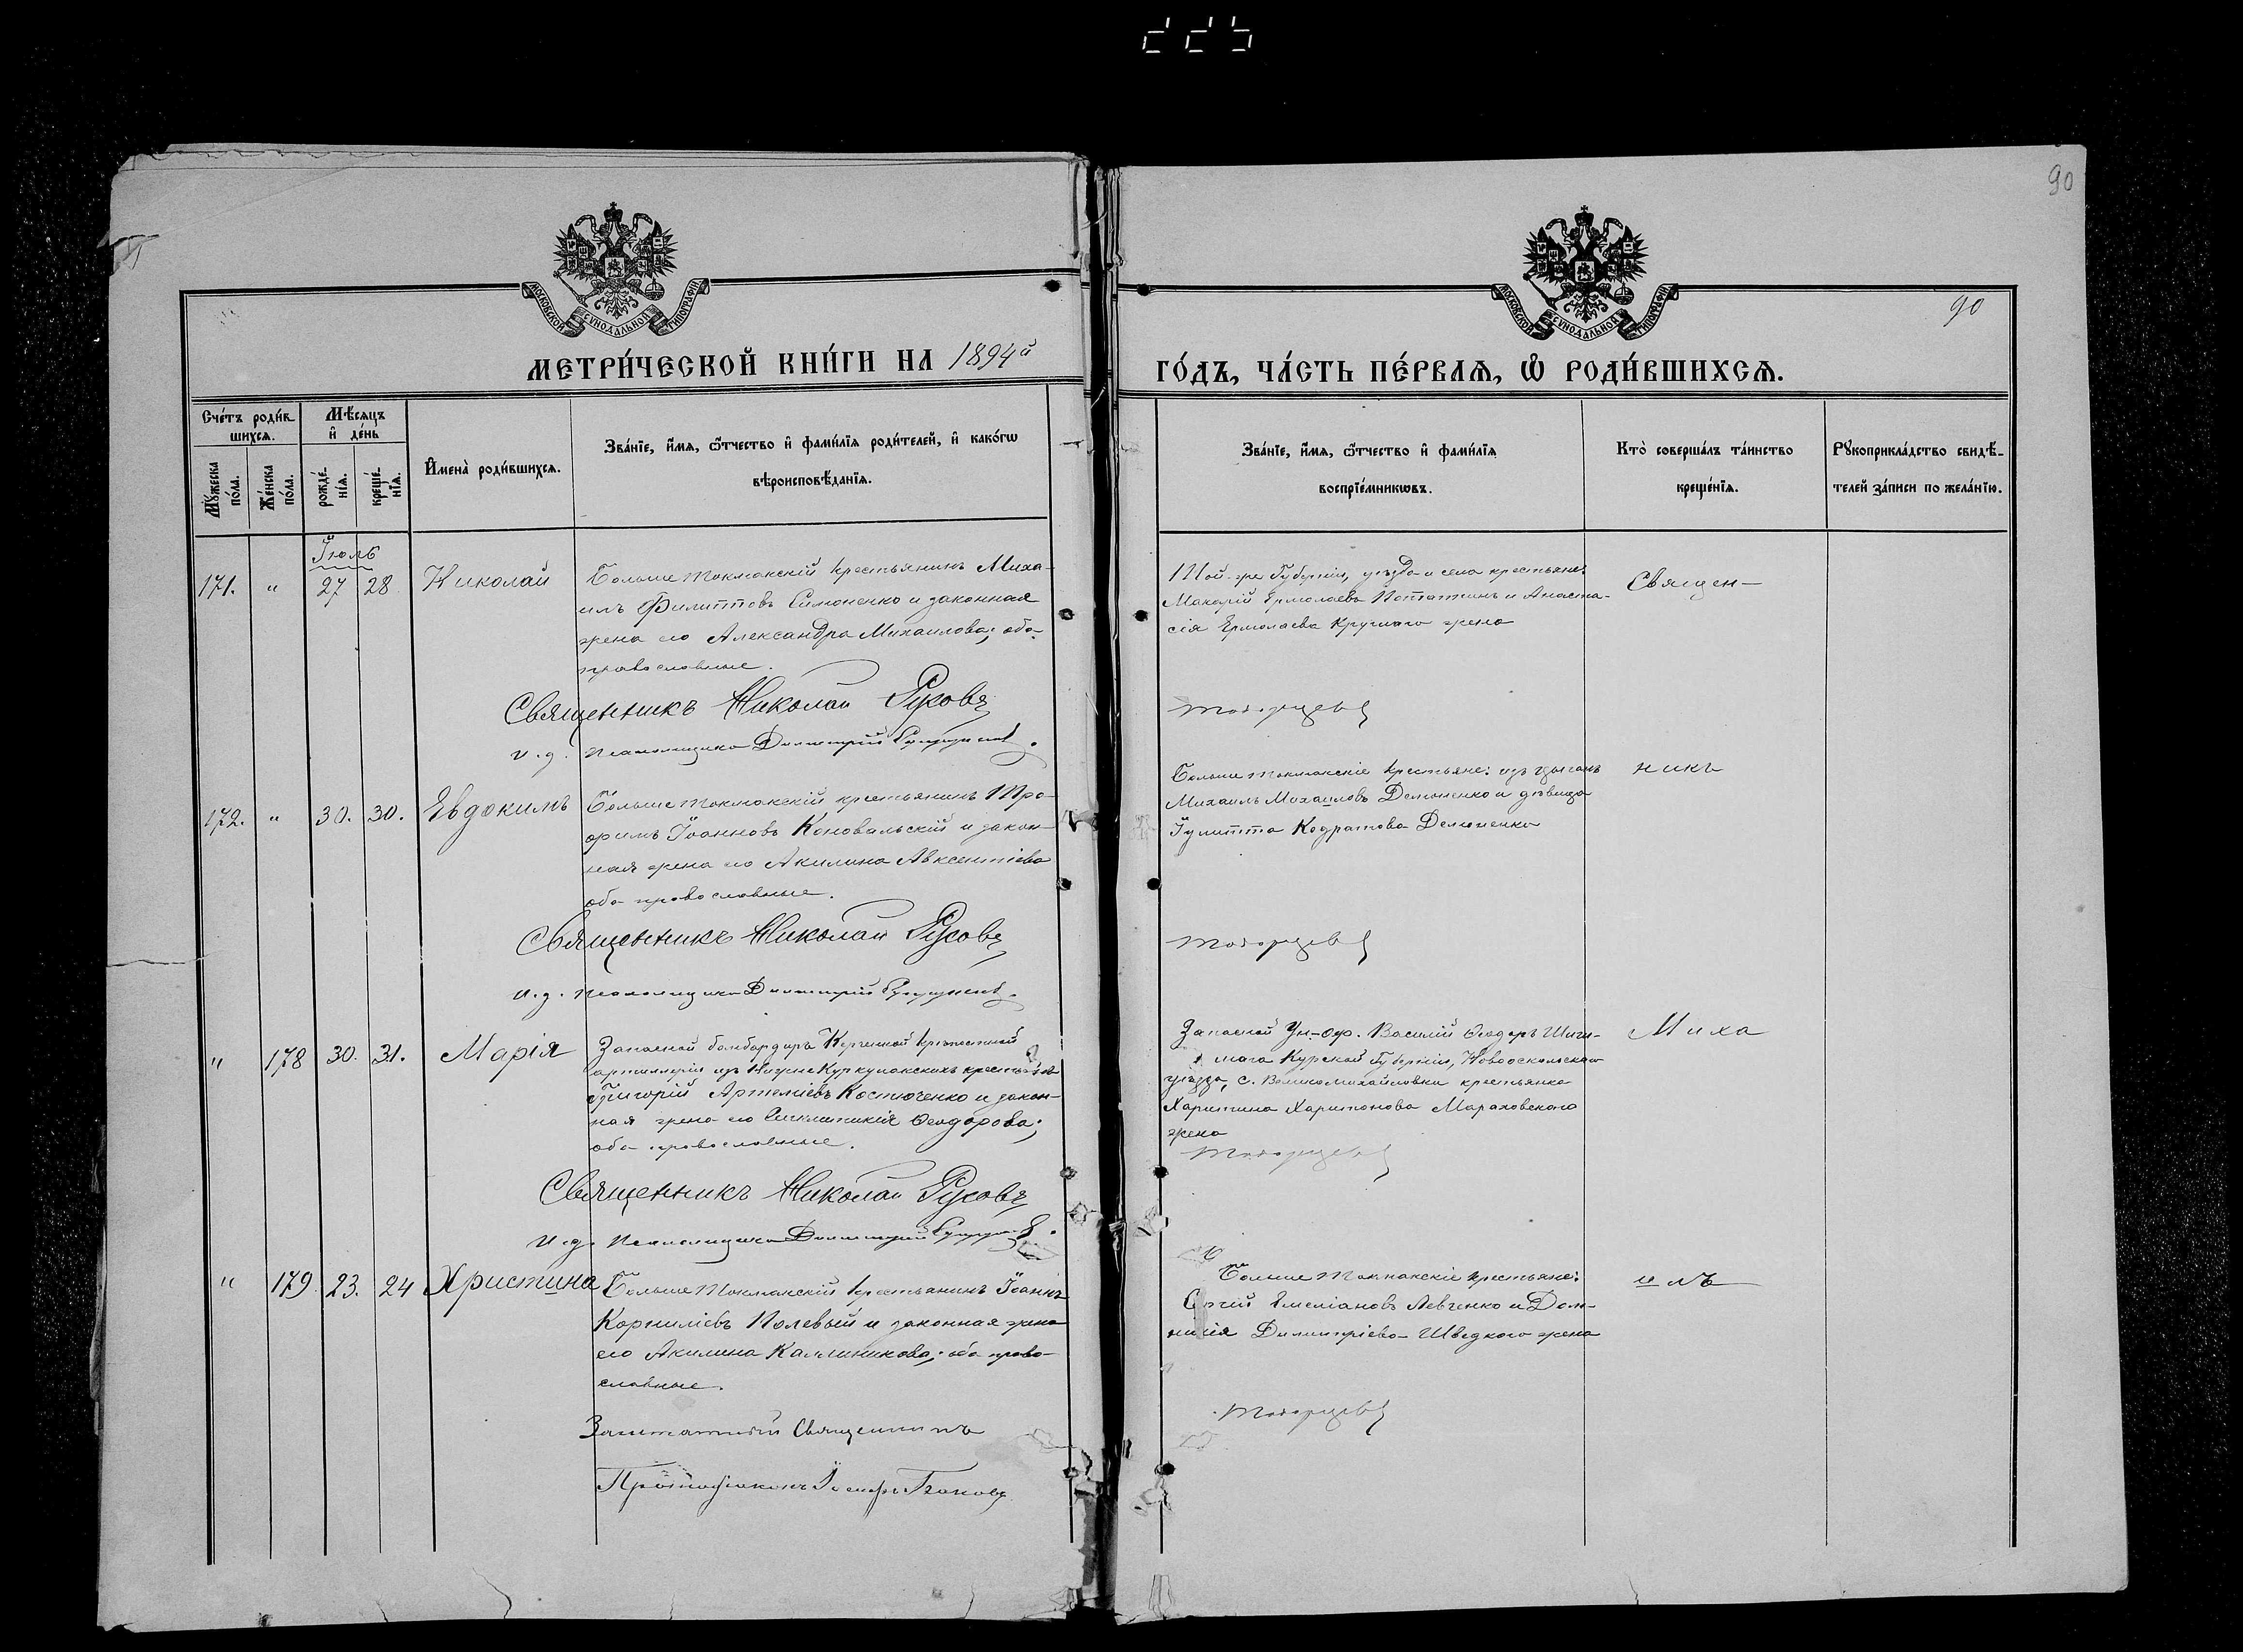 90
90
МОСКОВСКОЙ СѴНОДАЛЬНОЙ ТИПОГРАФІИ
МОСКОВСКОЙ СѴНОДАЛЬНОЙ ТИПОГРАФІИ
МЕТРИ́ЧЕСКОЙ КНИ́ГИ НА 1894й
ГО́ДЪ, ЧА́СТЬ ПЕ́РВАѦ, Ѽ РОДИ́ВШИХСѦ.
Сче́тъ роди́в
шихсѧ.
Мѣ́сяцъ
и де́нь
Мꙋ́жеска
по́ла.
Же́нска
по́ла.
рожде́-
нїѧ.
креще́-
нїѧ.
И҆мена̀ роди́вшихсѧ.
Зва́нїе, и҆́мѧ, ѻ҆́тчество и҆ фами́лїѧ роди́телей, и҆ како́гѡ
вѣроисповѣ́данїѧ.
Зва́нїе, и҆́мѧ, ѻ҆́тчество и҆ фами́лїѧ
воспрїе́мникѡвъ.
Кто̀ соверша́лъ та́инство
креще́нїѧ.
Рꙋкоприкла́дство свидѣ́-
телей за́писи по жела́нїю.
Іюль
171. " 27 28 Николай
Больше Токмакскій крестьянинъ Миха-
илъ Филипповъ Симоненко и законная
жена его Александра Михаилова; оба
православные.
Священникъ Николай Руковъ
и. д. Псаломщика Димитрій
Той-же Губерніи, уѣзда и села крестьяне:
Макарій Ермолаевъ и Анаста-
сія Ермолаева жена
Священ-
172. " 30. 30. Евдокимъ
Больше Токмакскій крестьянинъ Тро-
фимъ Іоанновъ Коновальскій и закон-
ная жена его Акилина Авксентіева
оба православные.
Священникъ Николай Руковъ
и. д. Псаломщика Димитрій
Больше Токмакскіе крестьяне:
Михаилъ Михаиловъ Демоненко и дѣвица
Іулитта Кодратова Демоненко
никъ
" 178 30. 31. Марія
Запасной бомбардиръ Керченской крѣпостной
артиллеріи изъ крестьянъ
Григорій Артеміевъ Костюченко и закон-
ная жена его Синклитикія Ѳеодорова;
оба православные.
Священникъ Николай Руковъ
и. д. Псаломщика Димитрій
Запасной Ун-Оф. Василій Ѳеодоръ
Курской Губерніи, Новооскольскаго
уѣзда, с. Великомихайловки крестьянка
Харитина Харитонова Мараховскаго
жена
Миха
" 179 23. 24 Христина
Больше Токмакскій крестьянинъ Іоаннъ
Корниліевъ Полевый и законная жена
его Акилина Каллиникова; оба право-
славные.
Заштатный Священникъ
Больше Токмакскіе крестьяне:
Сергій Емеліановъ Левченко и Дом-
никія Димитріева Шведкого жена
илъ